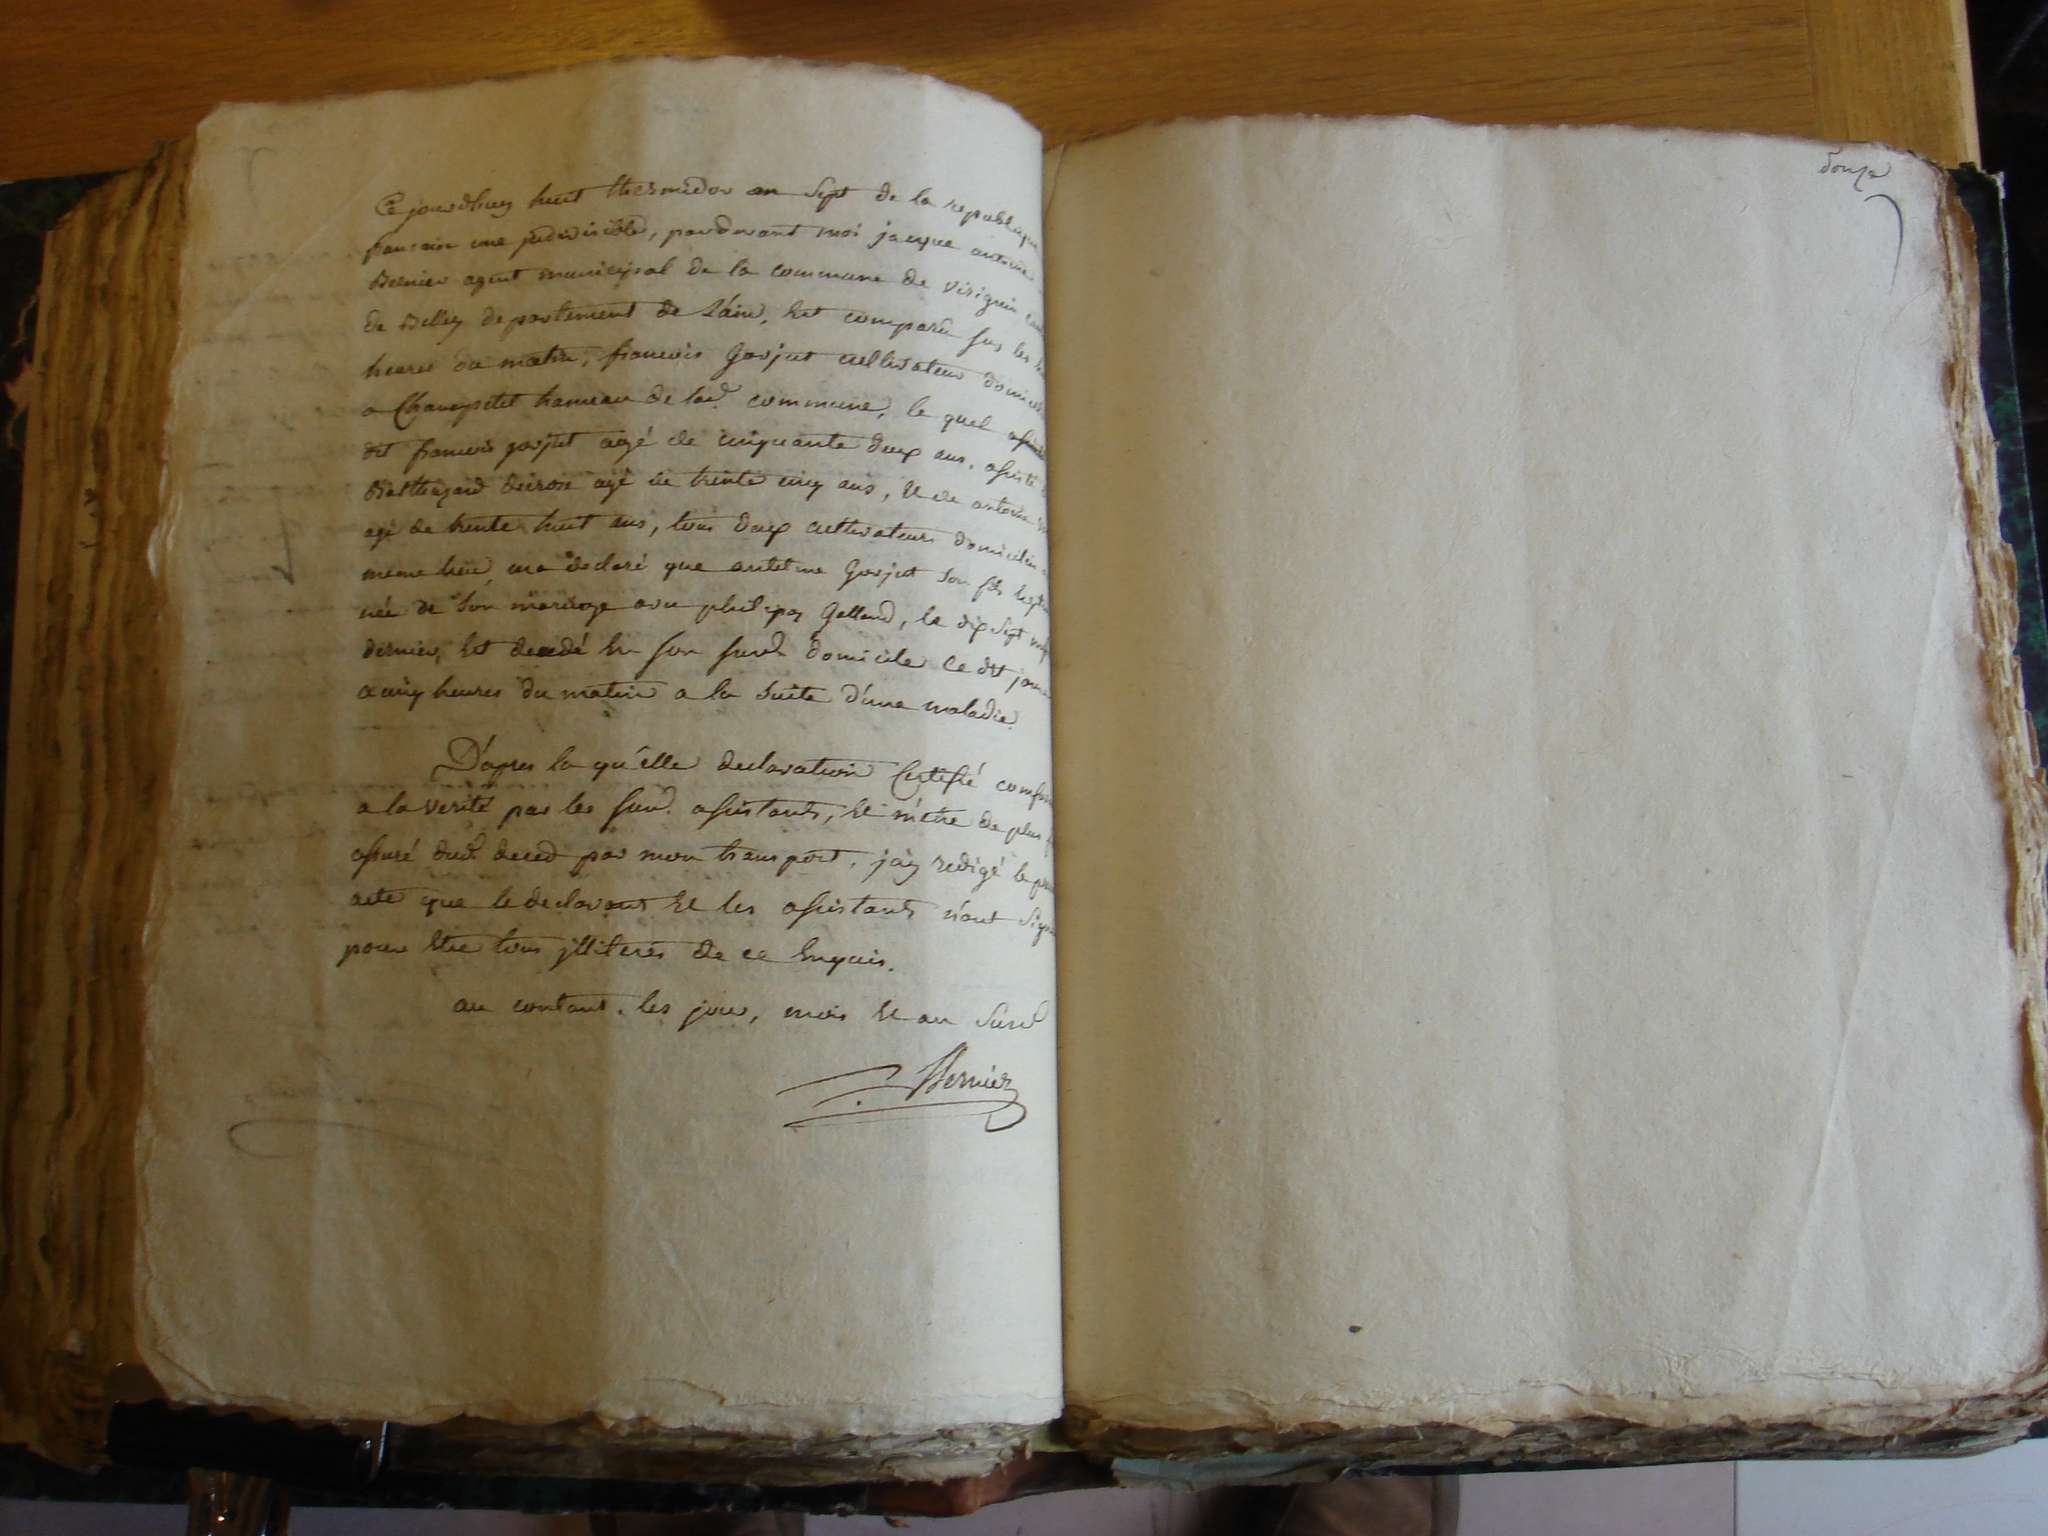 Ce jourdhuy huit thermidor an sept de la republique
francaise une jndivisible, pardevant moi jacque antoine
Bernier agent municipal de la commune de virignin
de Belley departement de L'ain, Est comparu sur les
heures du matin, francois Gorjut cultivateur
a Champetel hameau de lad. commune, le quel
dit francois gorjut agé de cinquante deux ans, assisté
Balthazard agé de trente cinq ans, Et de antoine
agé de trente huit ans, tous deux cultivateurs domiciliés
meme lieu, ma declaré que antelme Gorjut son fils
née de son mariage avec philipaz Galland, le dix sept
dernier, Est decedé En son susd. domicile ce dit jour
a cinq heures du matin a la suite d'une maladie.
D'apres la qu'elle declaration Certifié
a la verité par les susd. assistants, Et m'etre de plus
assuré dud. deced par mon transport, j'ay redigé le
acte que le declarant Et les assistants n'ont
pour Etre tous jlliterés de ce Enquis.
au contant. les jour, mois Et an susd.
Bernier
douze